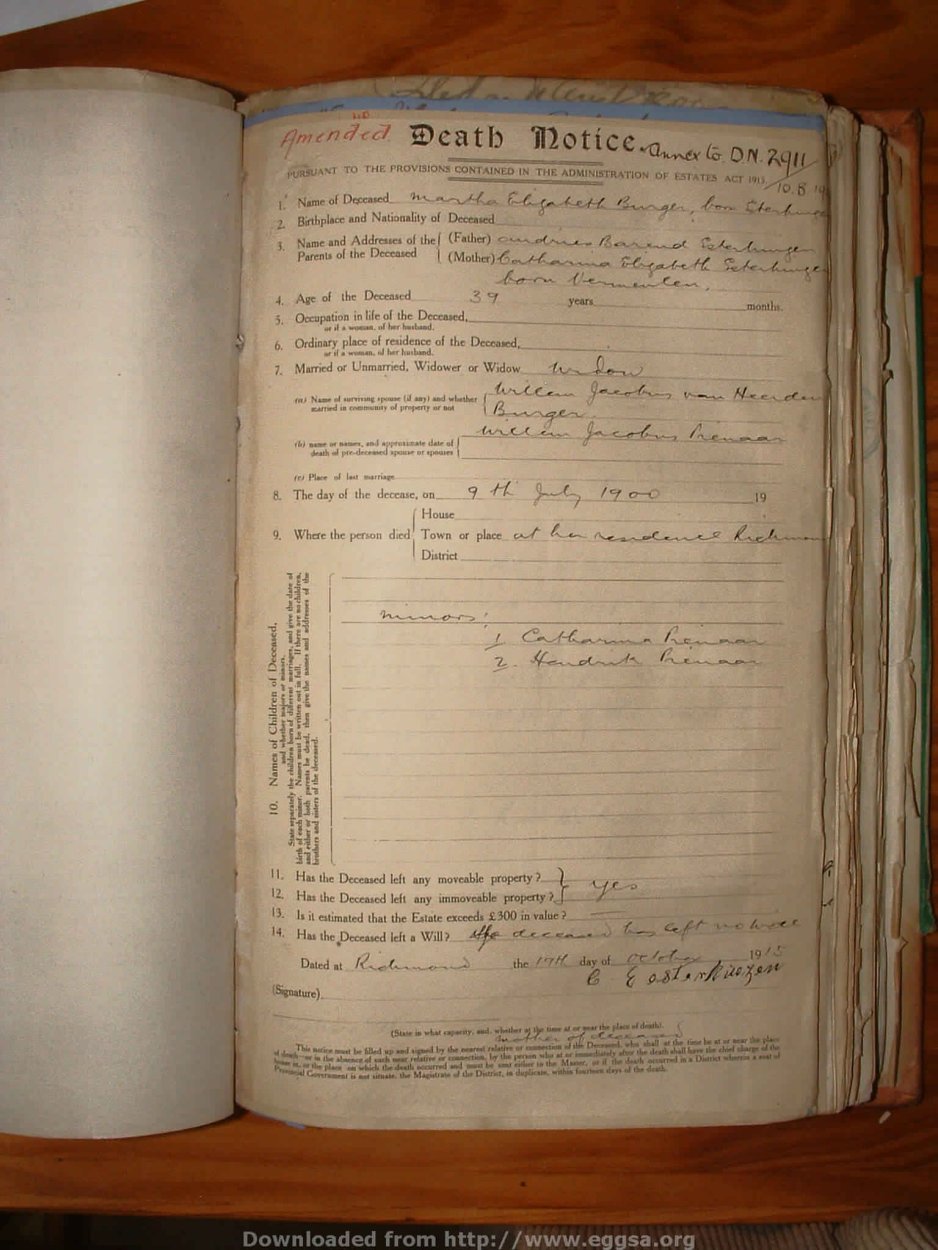 Amended Death Notice. annex to D.N. 2911
PURSUANT TO THE PROVISIONS CONTAINED IN THE ADMINISTRATION OF ESTATES ACT 1913. 10.8
1. Name of Deceased Martha Elizabeth Burger, born
2. Birthplace and Nationality of Deceased
3. Name and Addresses of the Parents of the Deceased (Father) Andries Barend Esterhuizen
(Mother) Catharina Elizabeth Esterhuizen
born Vermeulen,
4. Age of the Deceased 39 years months.
5. Occupation in life of the Deceased,
or if a woman, of her husband.
6. Ordinary place of residence of the Deceased,
or if a woman, of her husband.
7. Married or Unmarried, Widower or Widow Widow
(a) Name of surviving spouse (if any) and whether married in community of property or not Willem Jacobus van Heerden
Burger.
Willem Jacobus Pienaar
(b) name or names, and approximate date of death of pre-deceased spouse or spouses
(c) Place of last marriage
8. The day of the decease, on 9th July 1900 19
House
9. Where the person died Town or place at her residence
District
10. Names of Children of Deceased,
and whether majors or minors.
State separately the children born of different marriages, and give the date of
birth of each minor. Names must be written out in full. If there are no children,
and either or both parents be dead, then give the names and addresses of the
brothers and sisters of the deceased.
Minors:
1 Catharina Pienaar
2. Hendrik Pienaar
11. Has the Deceased left any moveable property?
12. Has the Deceased left any immoveable property? yes
13. Is it estimated that the Estate exceeds £300 in value?
14. Has the Deceased left a Will? deceased has left no will
Dated at Richmond the 17th day of October 1915
C E Esterhuizen
(Signature)
(State in what capacity, and, whether at the time at or near the place of death).
mother of deceased
This notice must be filled up and signed by the nearest relative or connection of the Deceased, who shall at the time be at or near the place
of death—or in the absence of such near relative or connection, by the person who at or immediately after the death shall have the chief charge of the
house in, or the place on which the death occurred and must be sent either to the Master, or if the death occurred in a District wherein a seat of
Provincial Government is not situate, the Magistrate of the District, in duplicate, within fourteen days of the death.
Downloaded from http://www.eggsa.org